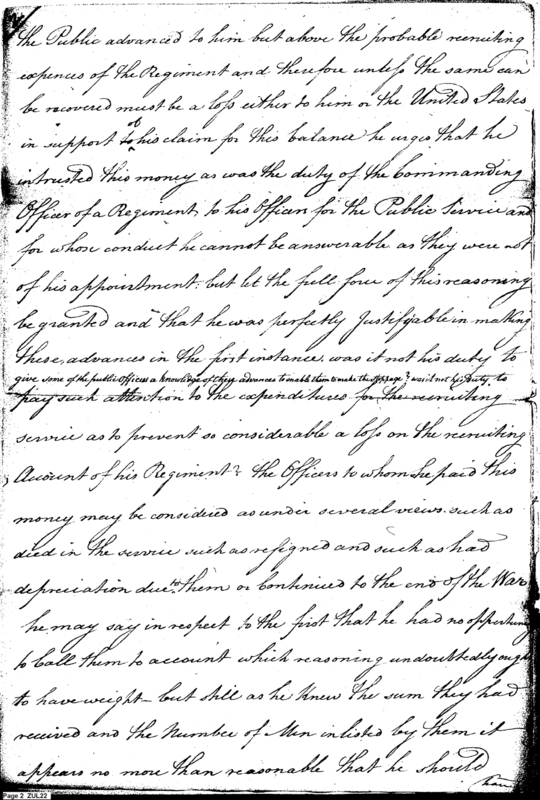 the Public advanced to him but above the probable recruiting
expences of the Regiment and therefore unless the same can
be recovered must be a loss either to him or the United States
in support of his claim for this balance he urges that he
intrusted this money as was the duty of the Commanding
Officer of a Regiment, to his Officers for the Public Service and
for whose conduct he cannot be answerable as they were not
of his appointment: but let the full force of this reasoning
be granted and that he was perfectly Justifyable in making
these advances in the first instance, was it not his duty to
give some of the public Offices a knowledge of these advances to enable them to make the stoppage? was it not his duty, to
pay such attention to the expenditures for the recruiting
service as to prevent so considerable a loss on the recruiting
Account of his Regiment? the Officers to whom he paid this
money may be considered as under several views. such as
died in the service such as resigned and such as had
depreciation due to them or continued to the end of the War
he may say in respect to the first that he had no opportunity
to Call them to account which reasoning undoubtedly ought
to have weight - but still as he knew the sum they had
received and the Number of Men inlisted by them it
appears no more than reasonable that he should
have
Page 2 ZUL22